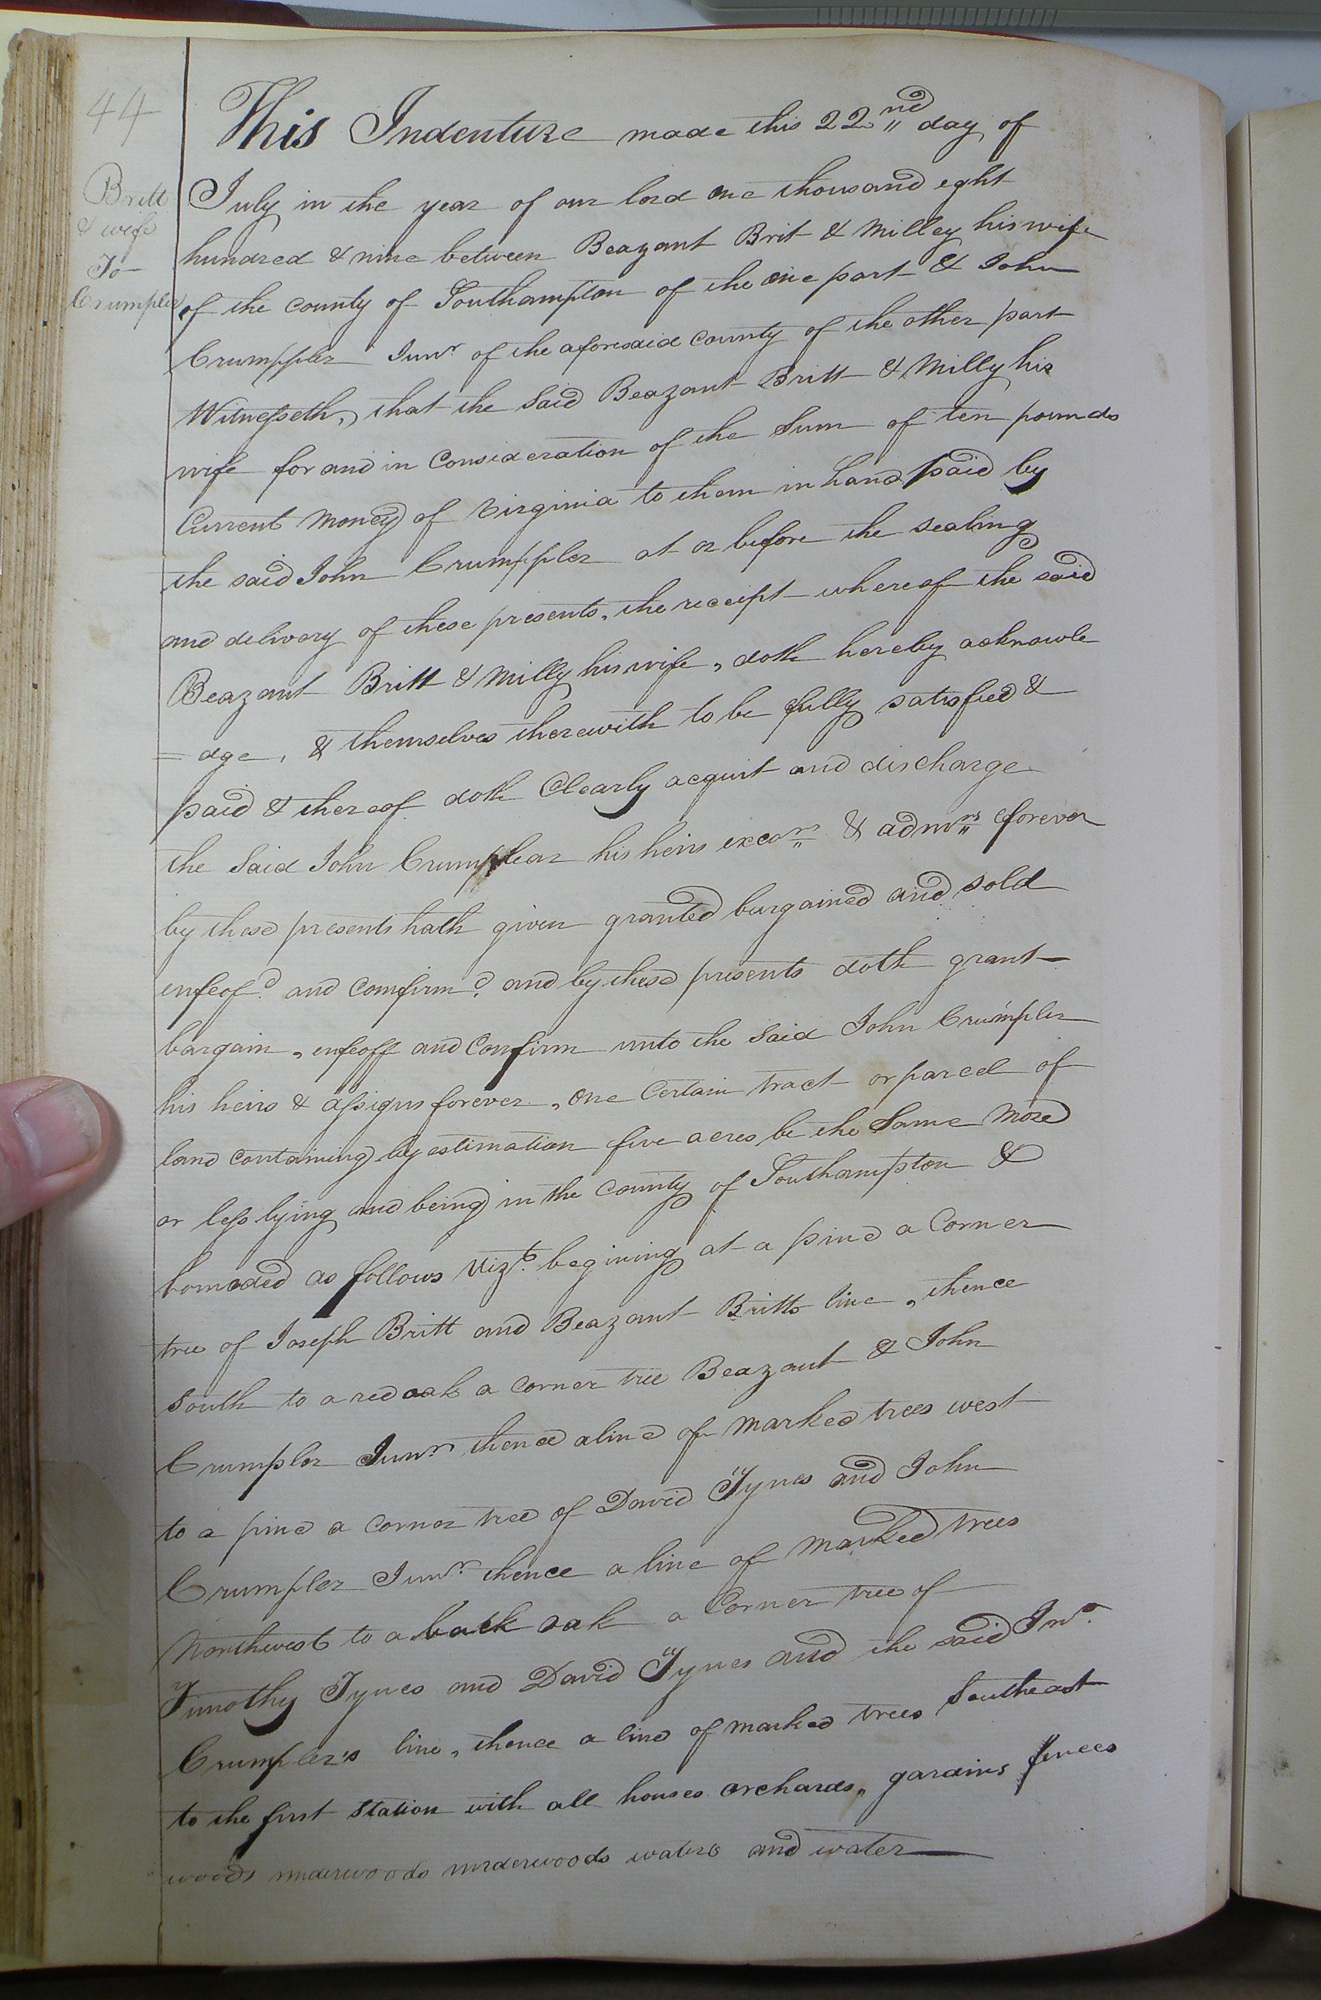 44
Britt
& wife
To
Crumpler
This Indenture made this 22nd day of
July in the year of our lord one thousand eght
hundred & nine between Beazant Brit & Milley his wife
of the county of Southampton of the one part & John
Crumppler Junr of the aforesaid county of the other part
Witnesseth, that the Said Beazant Britt & Milly his
wife for and in Consideration of the Sum of ten pounds
Current Money of Virginia to them in hand paid by
the said John Crumppler at or before the sealing
and delivery of these presents, the receipt whereof the said
Beazant Britt & Milly his wife, doth hereby acknowle
=dge, & themselves therewith to be fully satisfied &
paid & thereof doth Clearly acquit and discharge
the Said John Crumplear his heirs exears & admrs forever
by these presents hath given granted bargained and sold
enfeofd. and comfirmd. and by these presents doth grant
bargain, enfeoff and Confirm unto the Said John Crumpler
his heirs & assigns forever, one Certain tract or parcel of
land containing by estimation five acres be the Same More
or less lying and being in the County of Southampton &
bounded as follows Vizt. begining at a pine a Corner
tree of Joseph Britt and Beazant Britts line, thence
South to a red oak a corner tree Beazant & John
Crumpler Junr thence a line of marked trees west
to a pine a corner tree of David Tynes and John
Crumpler Junr. thence a line of marked trees
Northwest to a back oak a Corner tree of
Timothy Tynes and David Tynes and the said Jno.
Crumpler's line, thence a line of marked trees Southeast
to the first Station with all houses orchards, gardins fences
woods underwoods underwoods waters and water